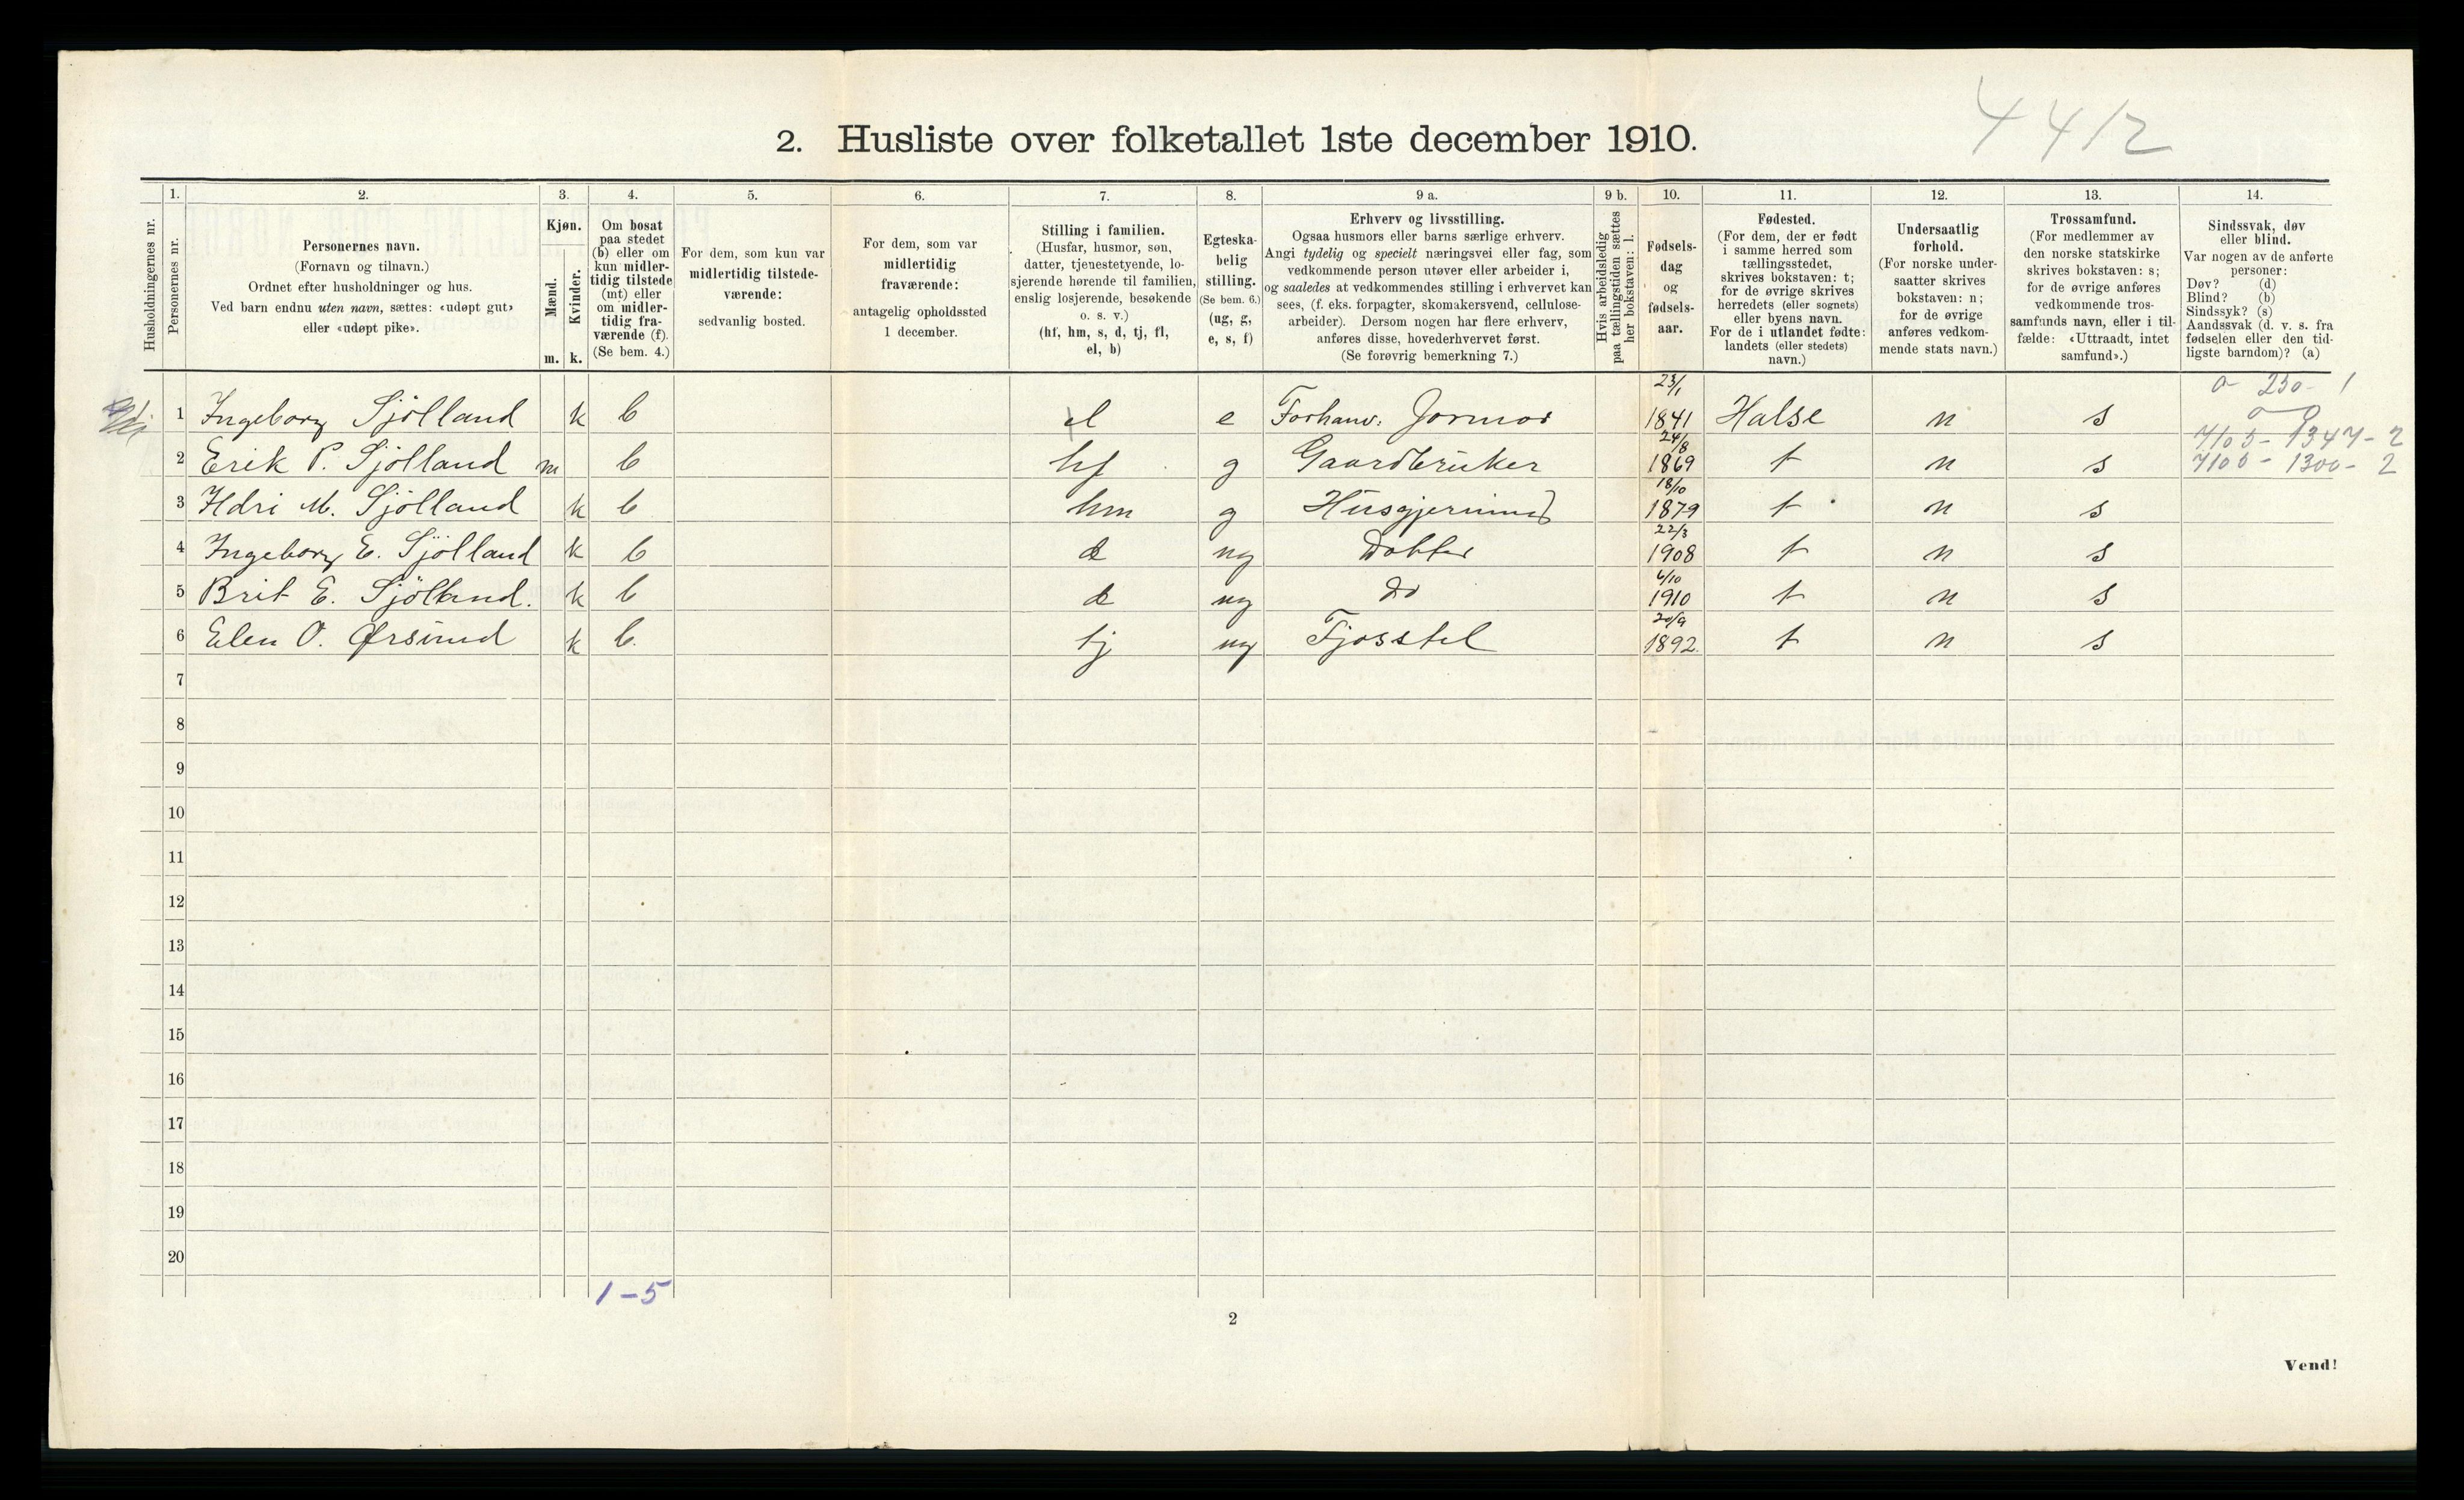 4412
2. Husliste over folketallet 1ste december 1910.
1. 2. 3. 4. 5. 6. 7. 8. 9 a. 9 b. 10. 11. 12. 13. 14.
Husholdningernes nr.
Personernes nr.
Personernes navn.
(Fornavn og tilnavn.)
Ordnet efter husholdninger og hus.
Ved barn endnu uten navn, sættes: «udøpt gut»
eller «udøpt pike».
Kjøn.
Mænd.
Kvinder.
m. k.
Om bosat
paa stedet
(b) eller om
kun midler-
tidig tilstede
(mt) eller
om midler-
tidig fra-
værende (f).
(Se bem. 4.)
For dem, som kun var
midlertidig tilstede-
værende:
sedvanlig bosted.
For dem, som var
midlertidig
fraværende:
antagelig opholdssted
1 december.
Stilling i familien.
(Husfar, husmor, søn,
datter, tjenestetyende, lo-
sjerende hørende til familien,
enslig losjerende, besøkende
o. s. v.)
(hf, hm, s, d, tj, fl,
el, b)
Egteska-
belig
stilling.
(Se bem. 6.)
(ug, g,
e, s, f)
Erhverv og livsstilling.
Ogsaa husmors eller barns særlige erhverv.
Angi tydelig og specielt næringsvei eller fag, som
vedkommende person utøver eller arbeider i,
og saaledes at vedkommendes stilling i erhvervet kan
sees, (f. eks. forpagter, skomakersvend, cellulose-
arbeider). Dersom nogen har flere erhverv,
anføres disse, hovederhvervet først.
(Se forøvrig bemerkning 7.)
Hvis arbeidsledig
paa tællingstiden sættes
her bokstaven: l.
Fødsels-
dag
og
fødsels-
aar.
Fødested.
(For dem, der er født
i samme herred som
tællingsstedet,
skrives bokstaven: t;
for de øvrige skrives
herredets (eller sognets)
eller byens navn.
For de i utlandet fødte:
landets (eller stedets)
navn.)
Undersaatlig
forhold.
(For norske under-
saatter skrives
bokstaven: n;
for de øvrige
anføres vedkom-
mende stats navn.)
Trossamfund.
(For medlemmer av
den norske statskirke
skrives bokstaven: s;
for de øvrige anføres
vedkommende tros-
samfunds navn, eller i til-
fælde: «Uttraadt, intet
samfund».)
Sindssvak, døv
eller blind.
Var nogen av de anførte
personer:
Døv? (d)
Blind? (b)
Sindssyk? (s)
Aandssvak (d. v. s. fra
fødselen eller den tid-
ligste barndom)? (a)
0 - 250 - 1
1 Ingeborg Sjölland k b el e Forhanv. Jormor 23/1 1841 Halse n s
7105 - 1347 - 2
2 Erik P. Sjölland m b hf g Gaardbruker 24/8 1869 t n s 7105 - 1300 - 2
3 Ildri M. Sjölland k b hm g Husgjerning 18/10 1879 t n s
4 Ingeborg E. Sjölland k b d ug Dotter 22/3 1908 t n s
5 Brit E. Sjölland. k b d ug do 6/10 1910 t n s
6 Elen O. Ørsund k b. tj ug Fjosstel 20/9 1892. t n s
7
8
9
10
11
12
13
14
15
16
17
18
19
20
1 - 5
2
Vend!